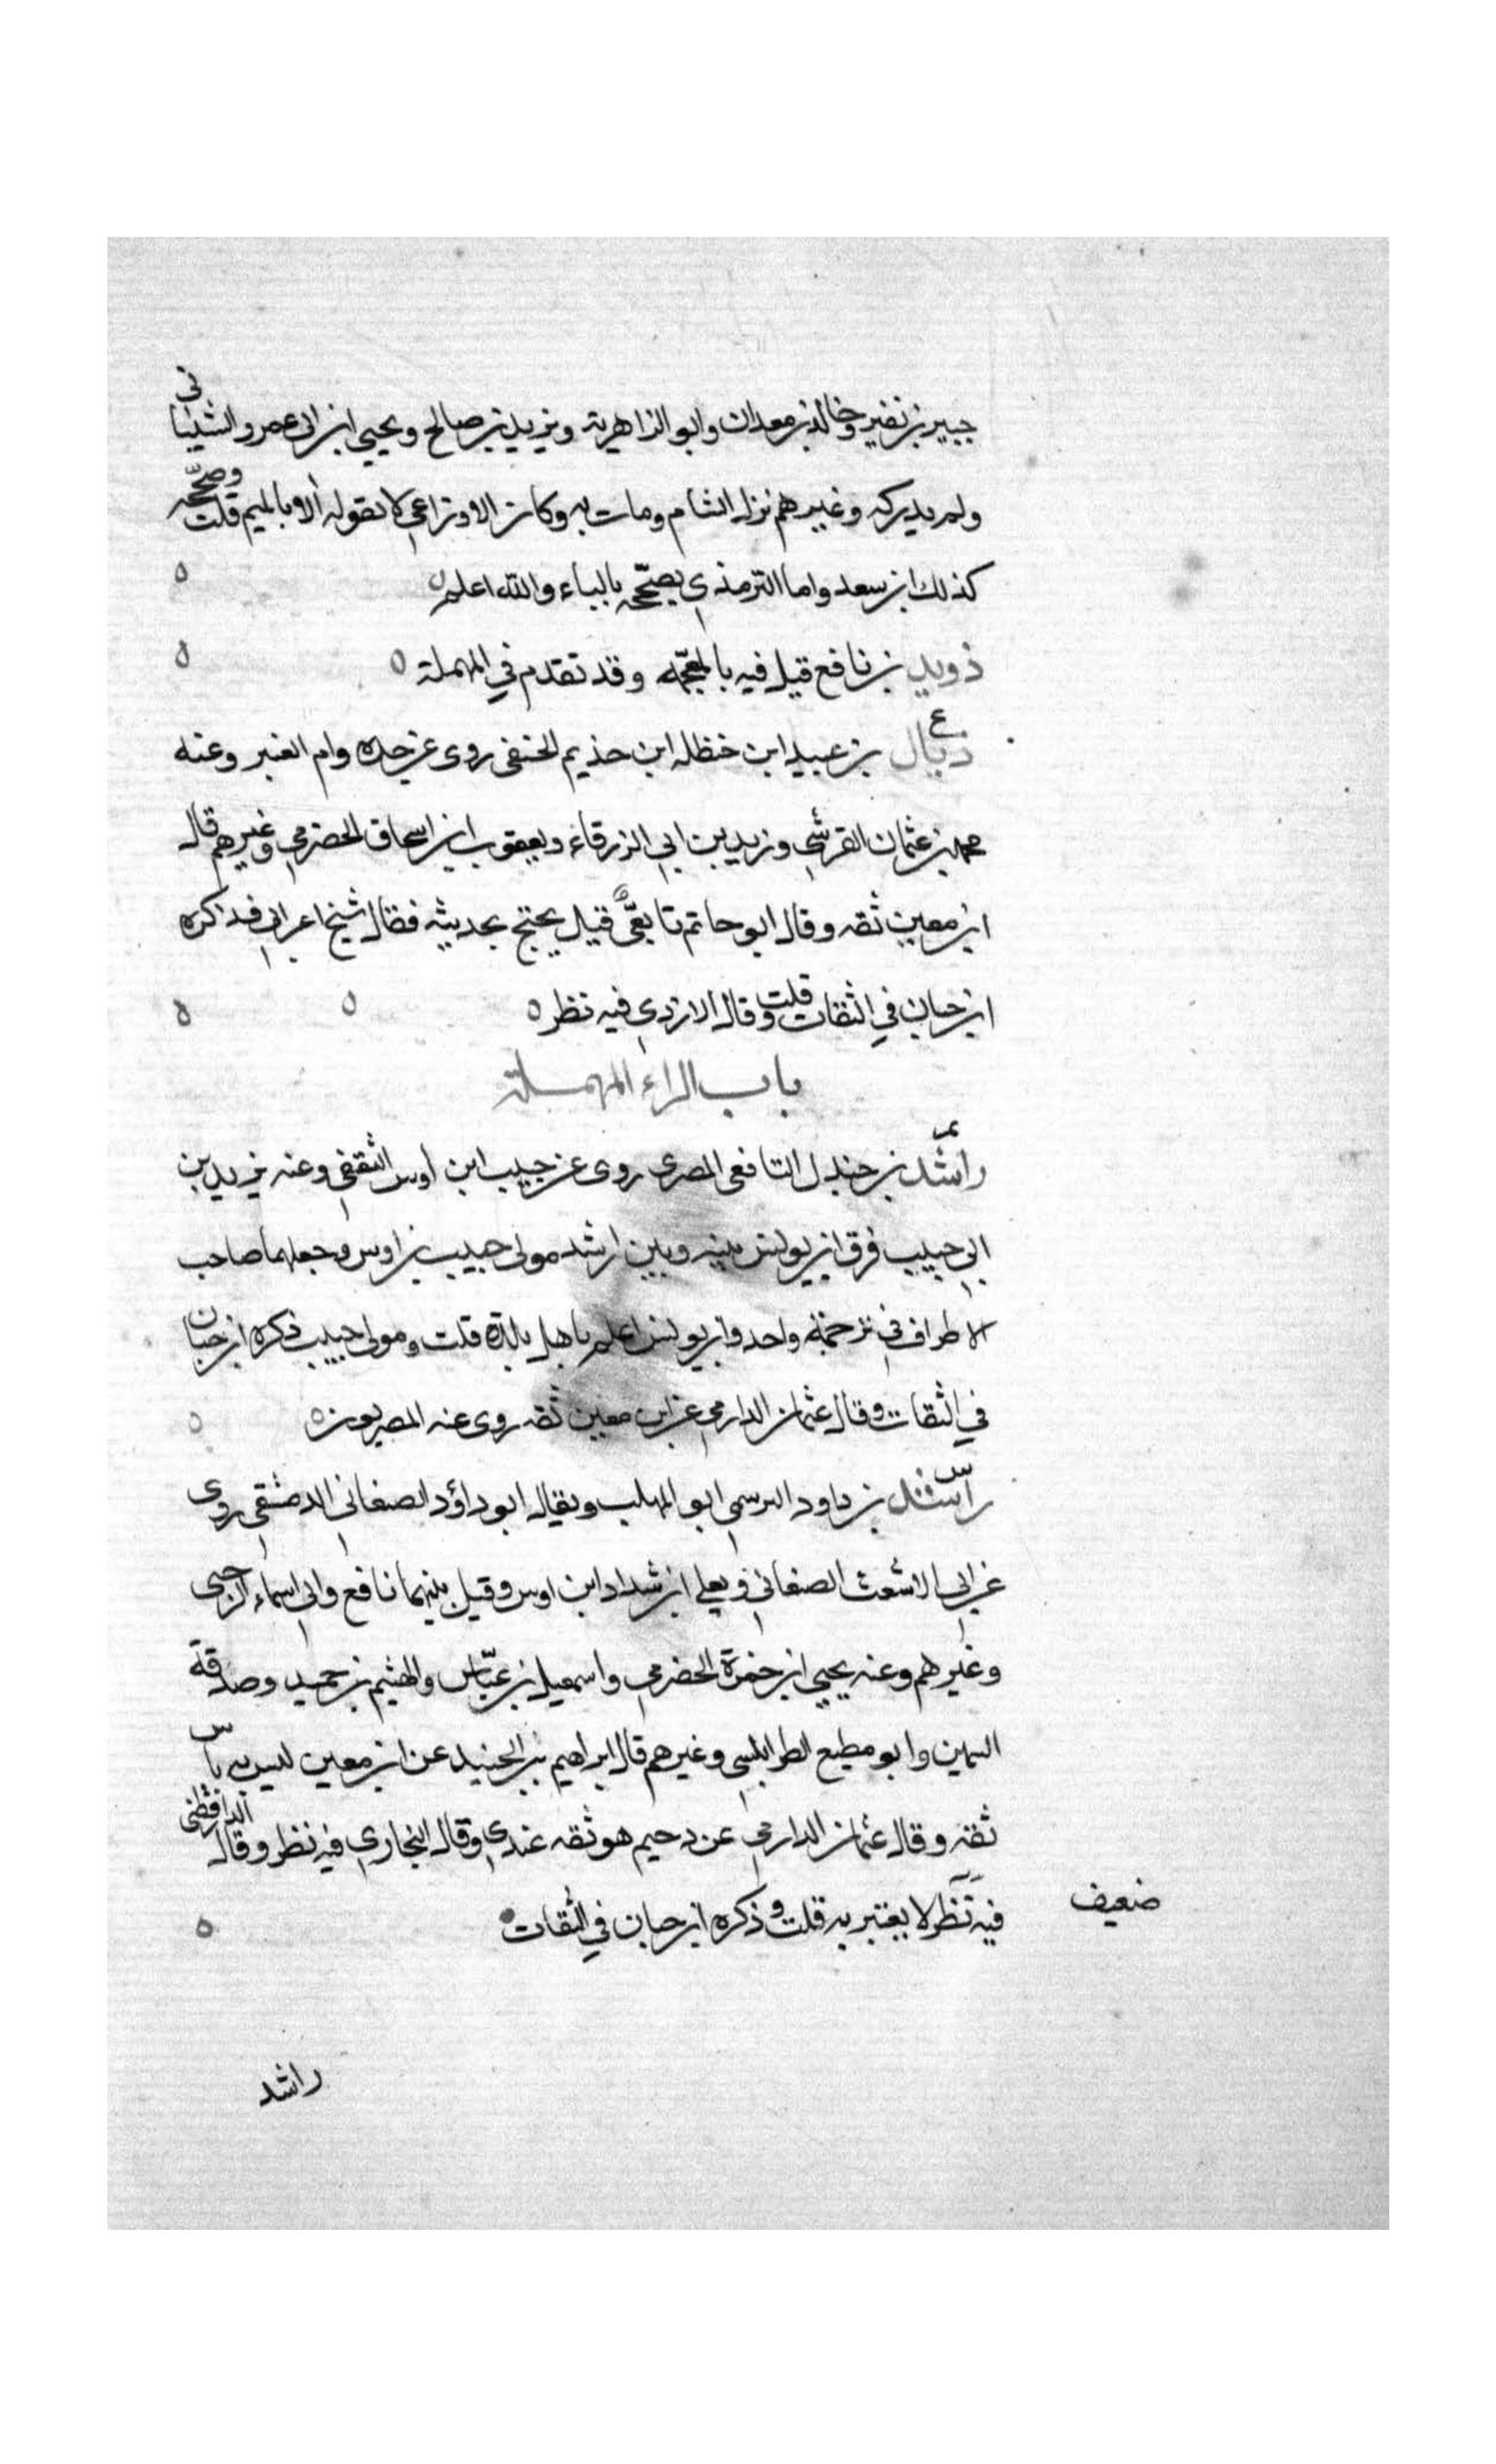 جبير بن نفير وخالد بن معدان وابو الزاهرية ويزيد بن صالح ويحيي ابن ابي عمرو الشيباني
ولم يدركه وغيرهم نزل الشام ومات به وكان الاوزاعي لا يقوله الا بالميم قلت وصححه
كذلك ابن سعد واما الترمذي يصححه بالباء والله اعلم ه
ذويد بن نافع قيل فيه بالمعجمه وقد تقدم في المهملة ه
ع
ذيال بن عبيد ابن حنظله ابن حذيم الحنفى روى عن جده وام العنبر وعنه
محمد بن عثمان القرشي وزيد بن ابي الزرقاء ويعقوب ابن اسحاق الحضرمي وغيرهم قال
ابن معين ثقه وقال ابو حاتم تابعي قيل يحتج بحديثه فقال شيخ اعرابي فذاكره
ابن حبان في الثقات قلت وقال الازدي فيه نظر ه
باب الراء المهملة
راشد بن جندل اليافعى المصرى روى عن حبيب ابن اوس الثقفي وعنه يزيد بن
ابي حبيب فرق ابن يونس بينه وبين ارشد مولى حبيب بن اوس وجعلهما صاحب
الاطراف في ترجمة واحد وابن يونس اعلم باهل بلده قلت ومولى حبيب ذكره ابن حبان
في الثقات وقال عثمان الدارمي عن ابن معين ثقه روى عنه المصريون ه
س
راشد بن داود البرسمي ابو المهلب ويقال ابو داؤد الصنعاني الدمشقي روى
عن ابي الاشعث الصنعاني ويعلي ابن شداد ابن اوس وقيل بينهما نافع وابي اسماء الرحبى
وغيرهم وعنه يحيي ابن حمزة الحضرمي واسمعيل بن عياش والهيثم بن حميد وصدقة
السمين وابو مطيع الطرابلسي وغيرهم قال ابراهيم بن الجنيد عن ابن معين ليس به باس
ثقه وقال عثمان الدارمي عن دحيم هو ثقه عندي وقال البخاري فيه نظر وقال الدارقطنى
فيه نظر لا يعتبر به قلت وذكره ابن حبان في الثقات
ضعيف
راشد